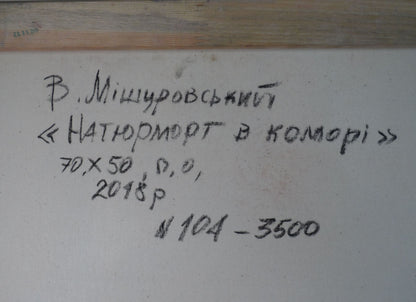 В. Мішуровський
« Натюрморт в коморі »
70 x 50, п, о,
2018 р
N 104 - 3500